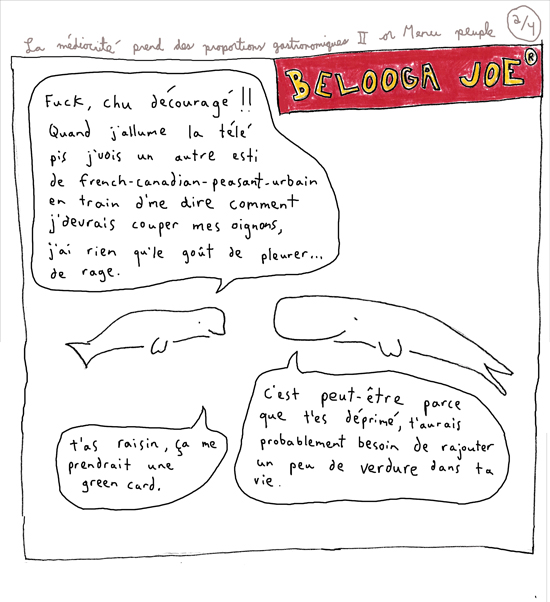 La médiocrité prend des proportions gastronomiques II or Menu peuple
2/4
BELOOGA JOE®
Fuck, chu découragé!!
Quand j'allume la télé
pis j'vois un autre esti
de french-canadian-peasant-urbain
en train d'me dire comment
j'devrais couper mes oignons,
j'ai rien qu'le goût de pleurer...
de rage.
c'est peut-être parce
que t'es déprimé, t'aurais
probablement besoin de rajouter
un peu de verdure dans ta
vie.
t'as raisin, ça me
prendrait une
green card.